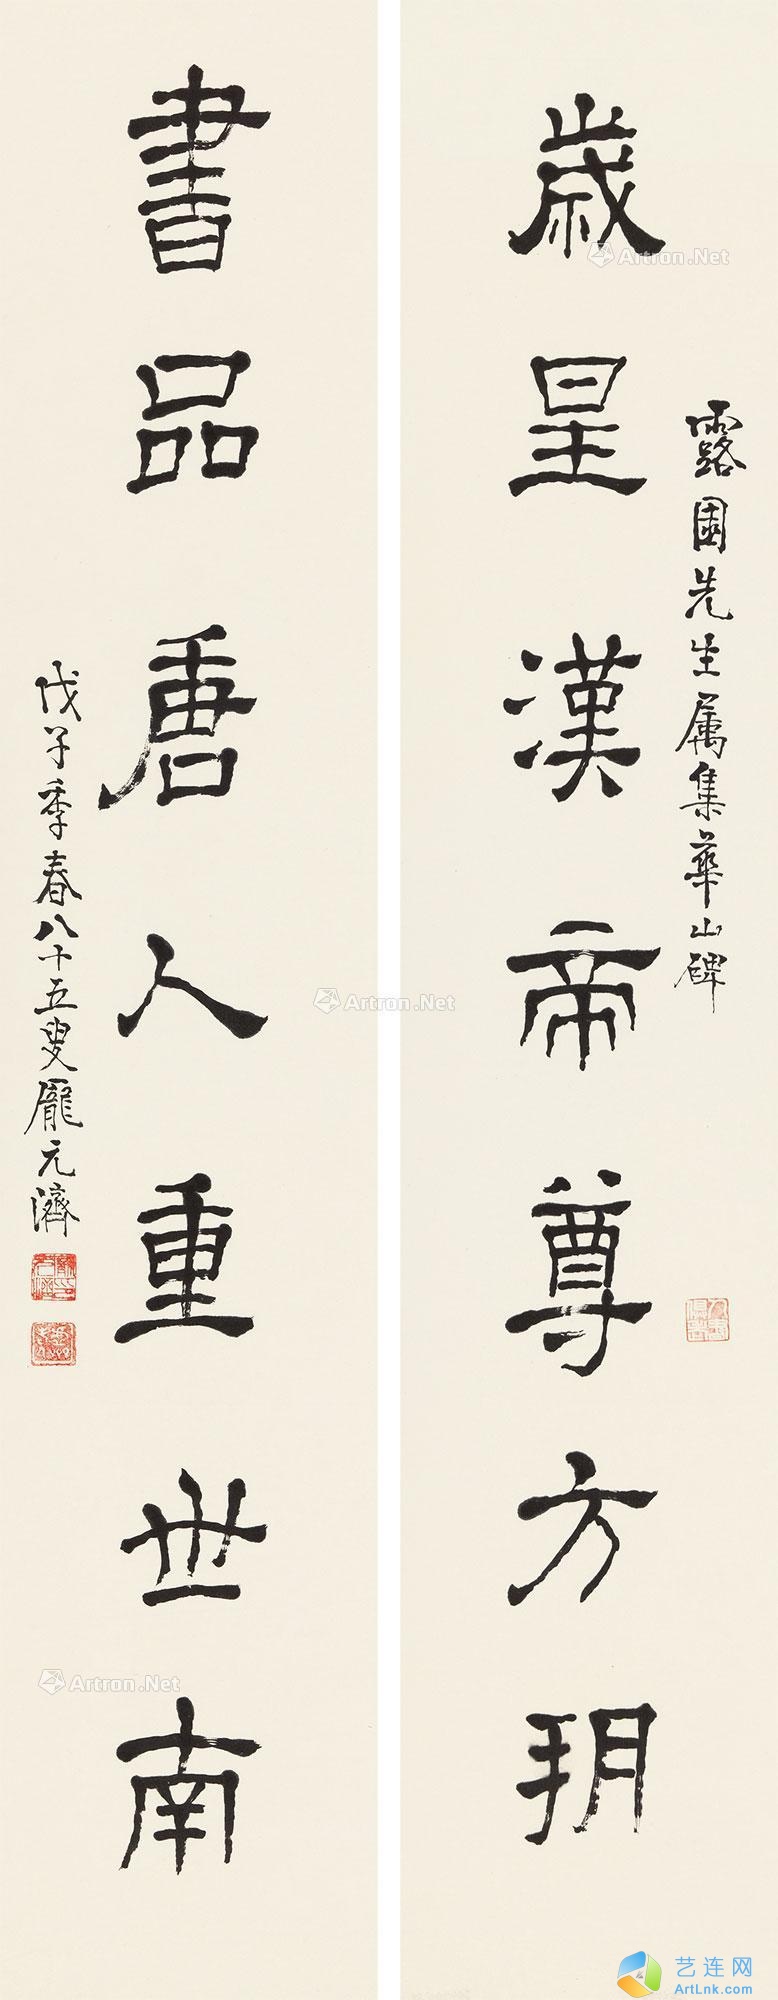 露園先生属集華山碑
歲星漢帝尊方朔
書品唐人重世南
戊子季春八十五叟龐元濟
Artron.Net
Artron.Net
Artron.Net
艺连网
ArtLnk.com